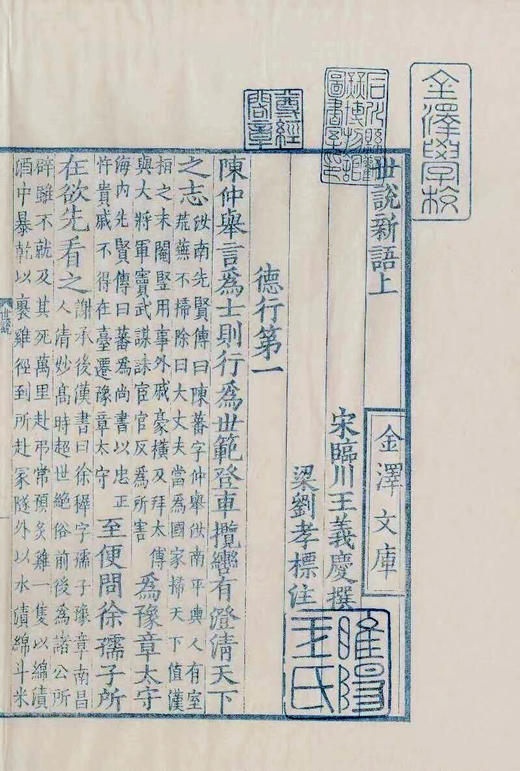 金澤學校
石川縣勸業博物館圖書室印
尊經閣章
世說新語上
金澤文庫
宋臨川王義慶撰
睢陽王氏
梁劉孝標注
德行第一
陳仲舉言為士則行為世範登車攬轡有澄清天下
之志汝南先賢傳曰陳蕃字仲舉汝南平輿人有室
荒蕪不掃除曰大丈夫當為國家掃天下值漢
桓之末閹豎用事外戚豪橫及拜太傅
與大將軍竇武謀誅宦官反為所害為豫章太守
海內先賢傳曰蕃為尚書以忠正
忤貴戚不得在臺遷豫章太守至便問徐孺子所
在欲先看之謝承後漢書曰徐穉字孺子豫章南昌
人清妙高時超世絕俗前後為諸公所
辟雖不就及其死萬里赴弔常預炙雞一隻以綿漬
酒中暴乾以裹雞徑到所赴冢隧外以水漬綿斗米
世說